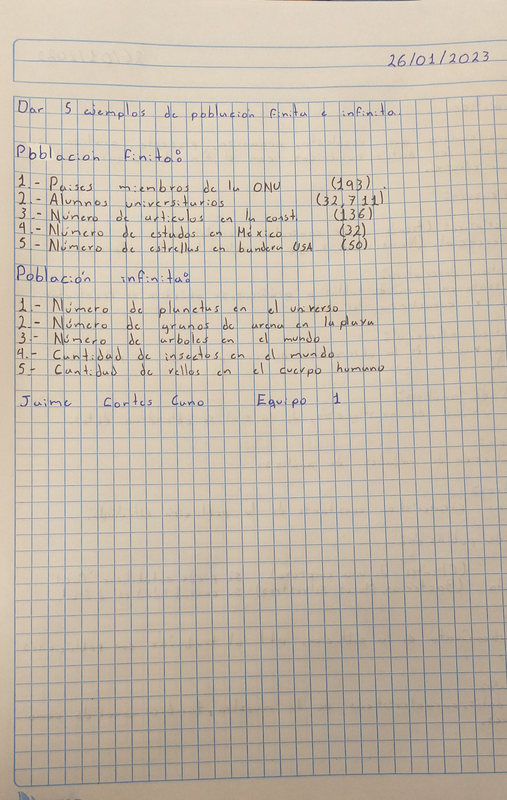 26/01/2023
Dar 5 ejemplos de poblacion finita e infinita.
Poblacion finita:
1.- Paises miembros de la ONU (193).
2.- Alumnos universitarios (32,711)
3.- Número de articulos en la const. (136)
4.- Número de estados en México (32)
5.- Número de estrellas en bandera USA (50)
Población infinita:
1.- Número de planetas en el universo
2.- Número de granos de arena en la playa
3.- Número de arboles en el mundo
4.- Cantidad de insectos en el mundo
5.- Cantidad de vellos en el cuerpo humano
Jaime Cortes Cano Equipo 1